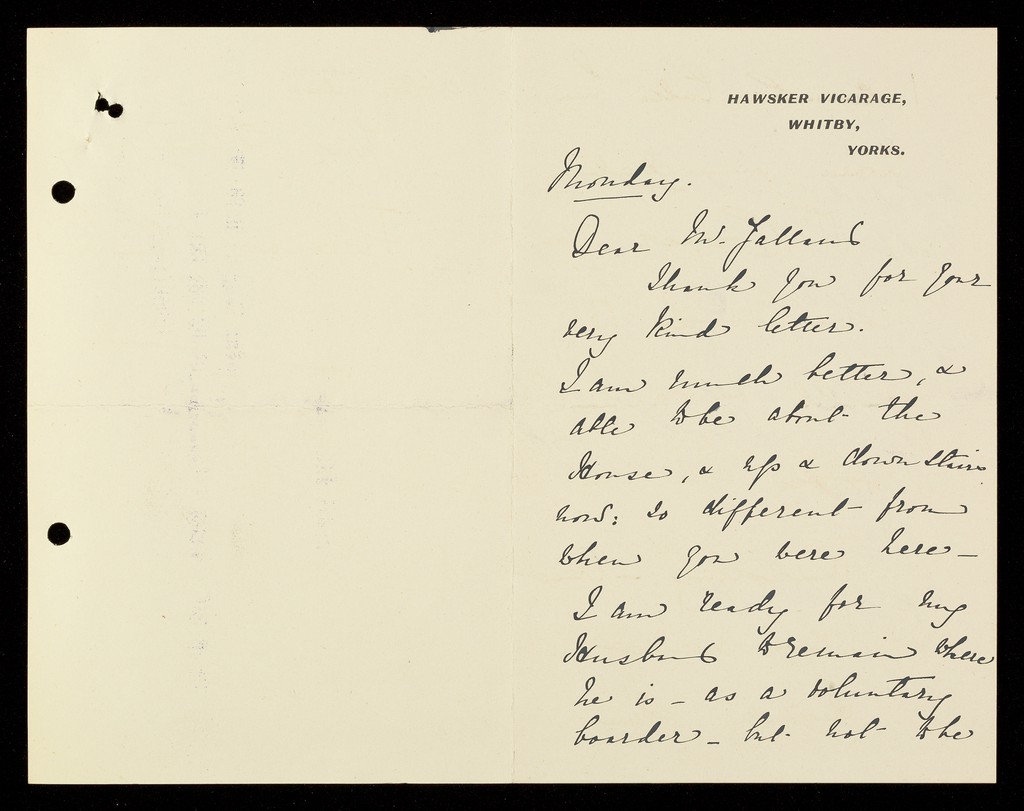 HAWSKER VICARAGE,
WHITBY,
YORKS.
Monday.
Dear Mr. Jalland
Thank you for your
very kind letter.
I am much better, &
able to be about the
House, & up & down stairs
now: so different from
when you were here –
I am ready for my
Husband to remain where
he is – as a voluntary
boarder – but not to be